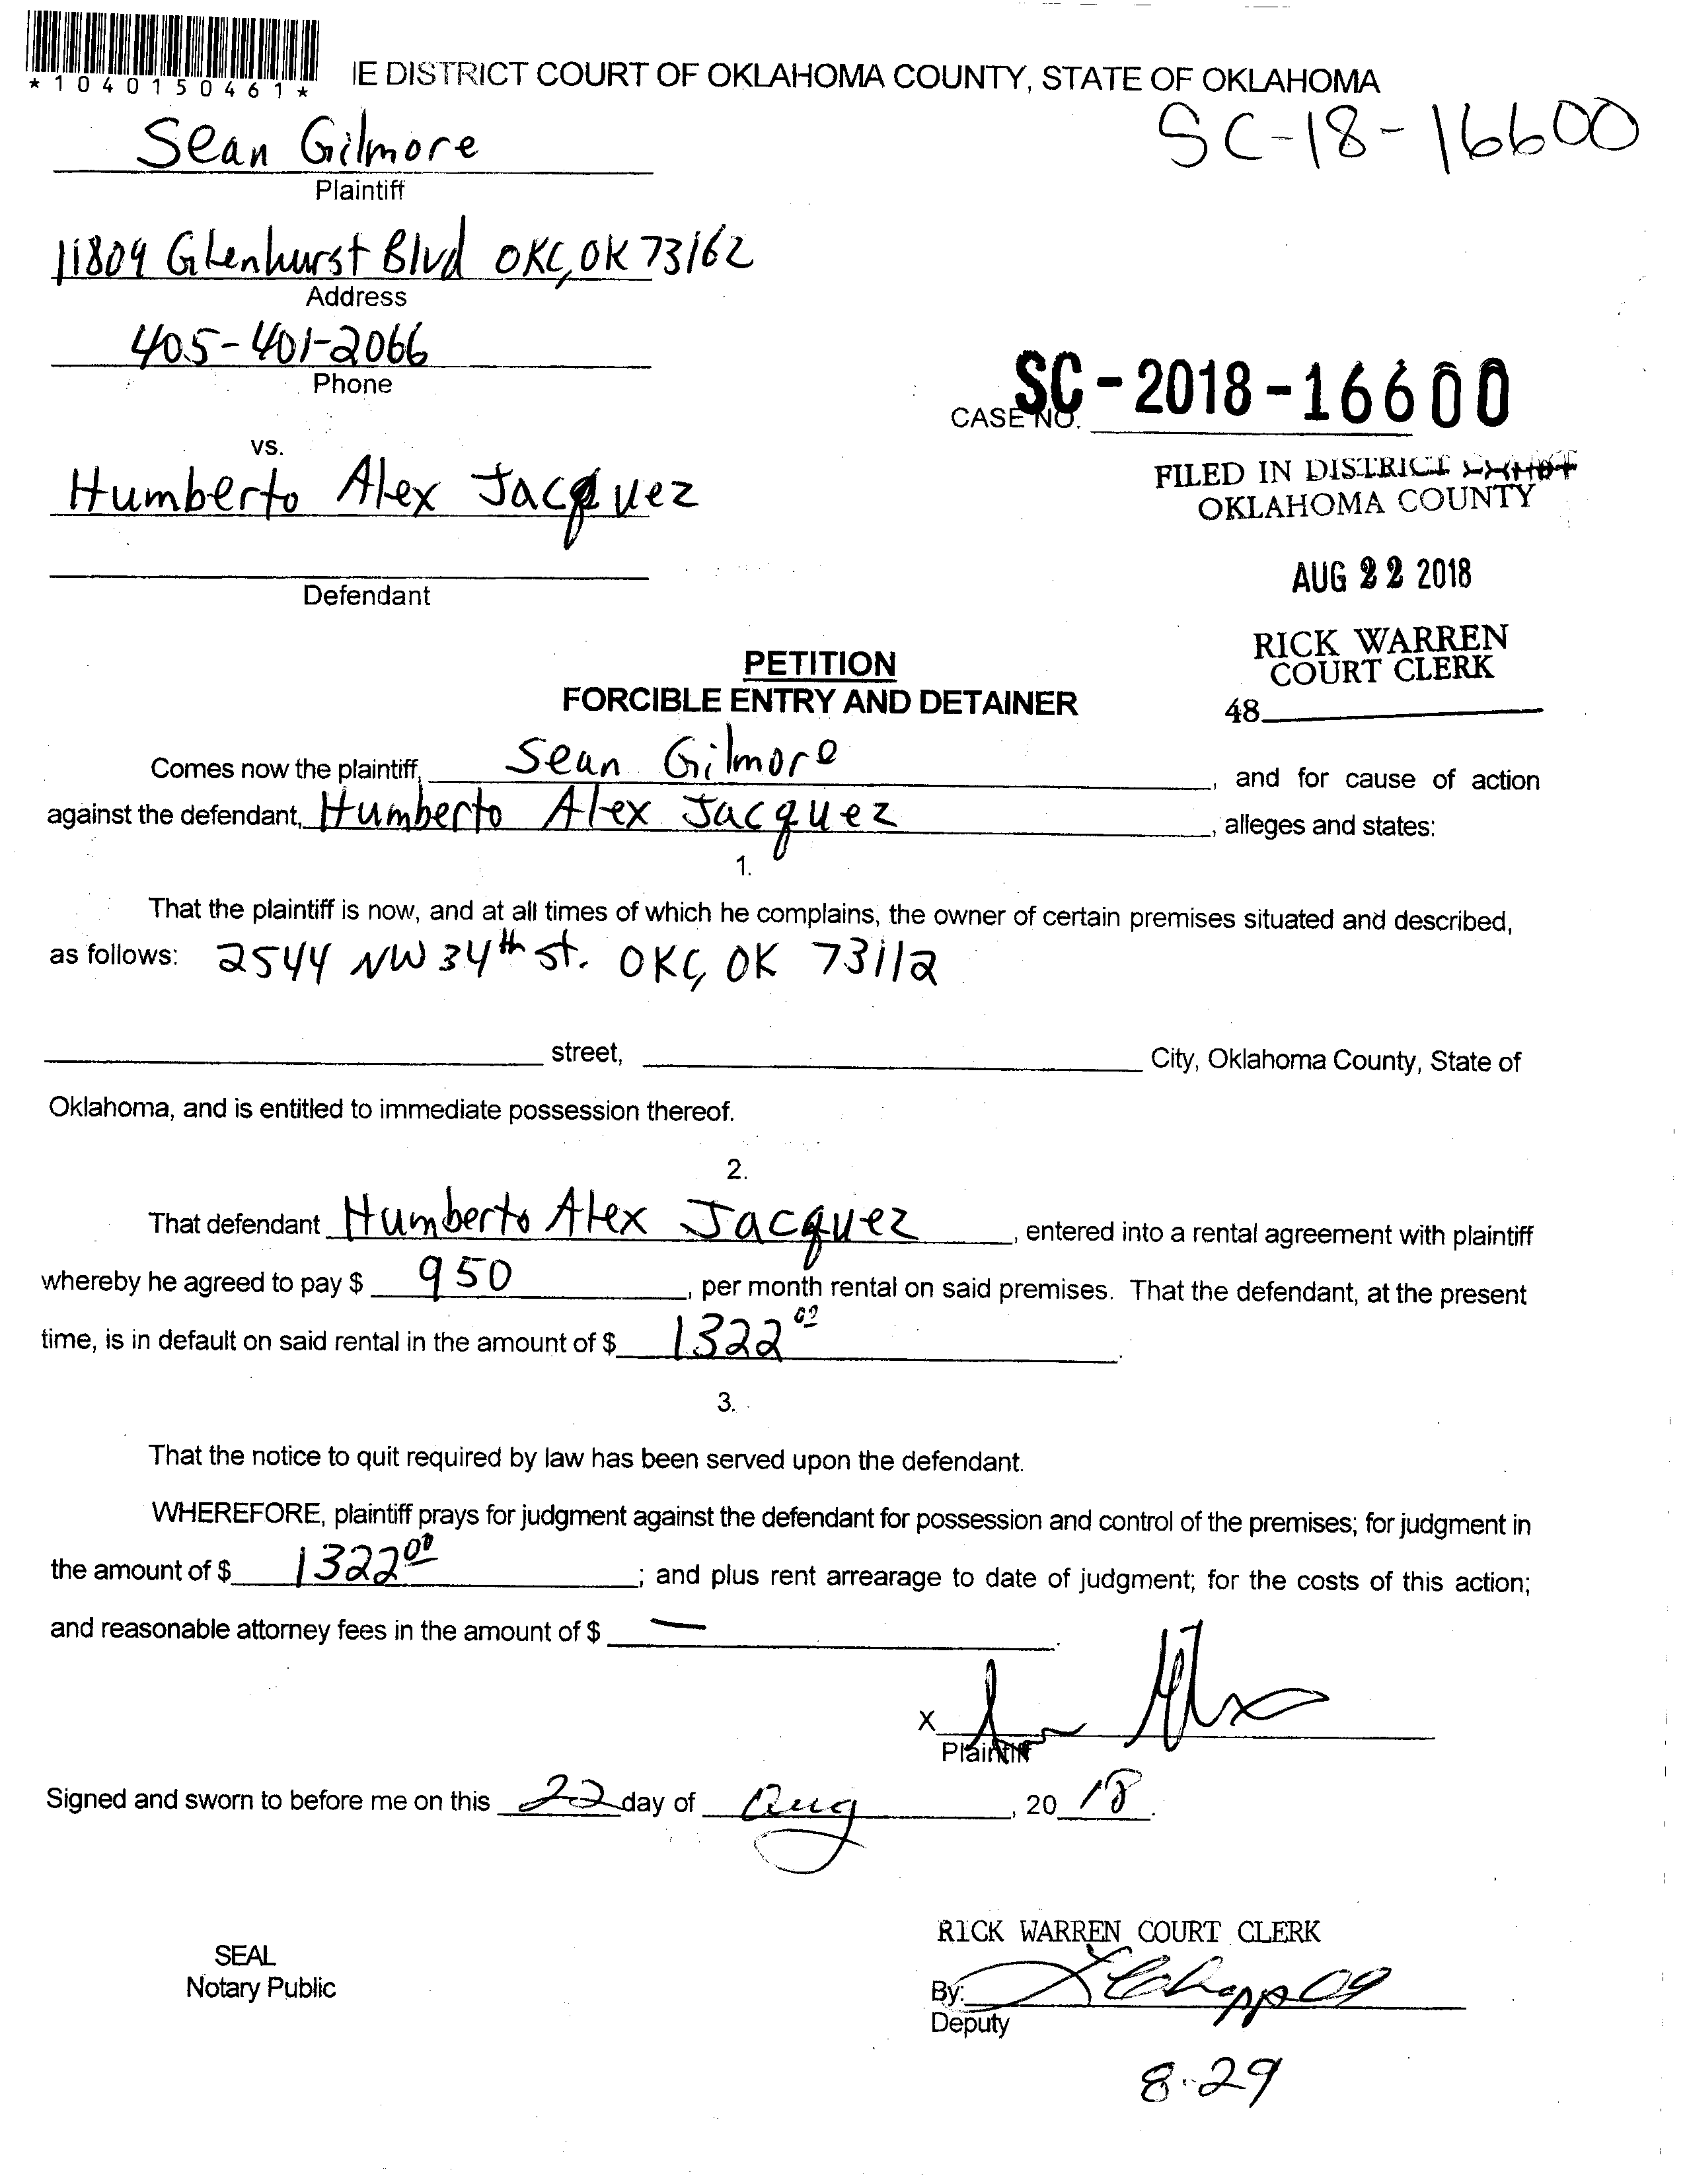 *1040150461*
IE DISTRICT COURT OF OKLAHOMA COUNTY, STATE OF OKLAHOMA
SC-18-16600
Sean Gilmore
Plaintiff
11809 Glenhurst Blvd OKC, OK 73162
Address
405-401-2066
Phone
SC-2018-16600
CASE NO.
vs.
Humberto Alex Jacquez
Defendant
FILED IN DISTRICT COURT
OKLAHOMA COUNTY
AUG 22 2018
RICK WARREN
COURT CLERK
48
PETITION
FORCIBLE ENTRY AND DETAINER
Comes now the plaintiff, Sean Gilmore, and for cause of action
against the defendant, Humberto Alex Jacquez, alleges and states:
1.
That the plaintiff is now, and at all times of which he complains, the owner of certain premises situated and described,
as follows: 2544 NW 34th st. OKC, OK 73112
street, City, Oklahoma County, State of
Oklahoma, and is entitled to immediate possession thereof.
2.
That defendant Humberto Alex Jacquez, entered into a rental agreement with plaintiff
whereby he agreed to pay $ 950, per month rental on said premises. That the defendant, at the present
time, is in default on said rental in the amount of $ 1322 00.
3.
That the notice to quit required by law has been served upon the defendant.
WHEREFORE, plaintiff prays for judgment against the defendant for possession and control of the premises; for judgment in
the amount of $ 1322 00; and plus rent arrearage to date of judgment; for the costs of this action;
and reasonable attorney fees in the amount of $ —.
X
Plaintiff
Signed and sworn to before me on this 22 day of Aug, 20 18.
RICK WARREN COURT CLERK
SEAL
Notary Public
By:
Deputy
8-29